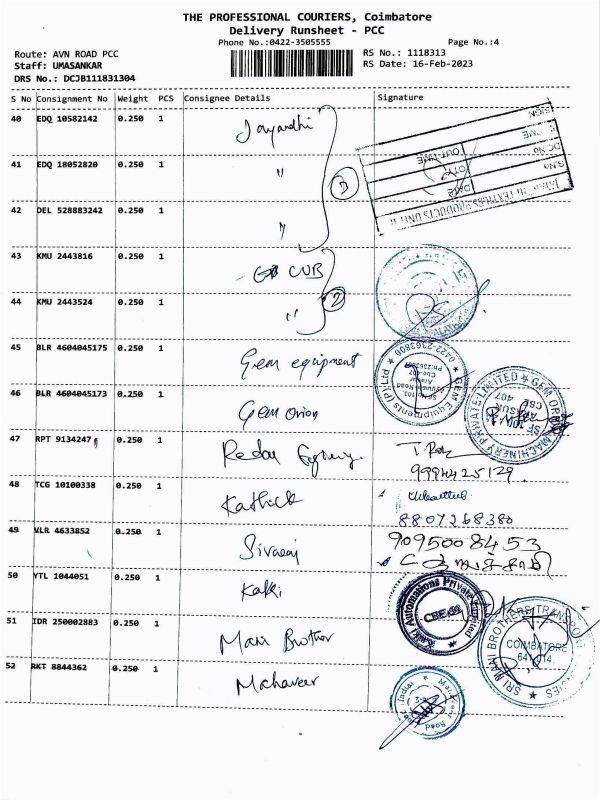 THE PROFESSIONAL COURIERS, Coimbatore
Delivery Runsheet - PCC
Phone No.:0422-3505555 Page No.:4
Route: AVN ROAD PCC RS No.: 1118313
Staff: UMASANKAR RS Date: 16-Feb-2023
DRS No.: DCJB111831304
S No Consignment No Weight PCS Consignee Details Signature
40 EDQ 10582142 0.250 1 Jayandhi
41 EDQ 18052820 0.250 1 "
③
42 DEL 528883242 0.250 1 "
43 KMU 2443816 0.250 1 CUB
44 KMU 2443524 0.250 1 " ②
45 BLR 4604045175 0.250 1 Gem equipment
46 BLR 4604045173 0.250 1 Gem orion
47 RPT 9134247 0.250 1 Redon
9994425129
48 TCG 10100338 0.250 1 Kathick
8807268380
49 VLR 4633852 0.250 1 Sivaraj 9095008453
50 YTL 1044051 0.250 1 Kaki
51 IDR 250002883 0.250 1 Mani Brother
52 RKT 8844362 0.250 1 Mahaveer
SIGN
OUT-TIME
DC No
S.No
QTY
DATE
TEXTILES PRODUCTS UNIT II
GEM Equipments (P) Ltd
0422-2363800
GEM ORION MACHINERY PRIVATE LIMITED
Kaki Automations Private Limited
SRI MANI BROTHERS TRANSPORT AGENCIES
COIMBATORE
641 014